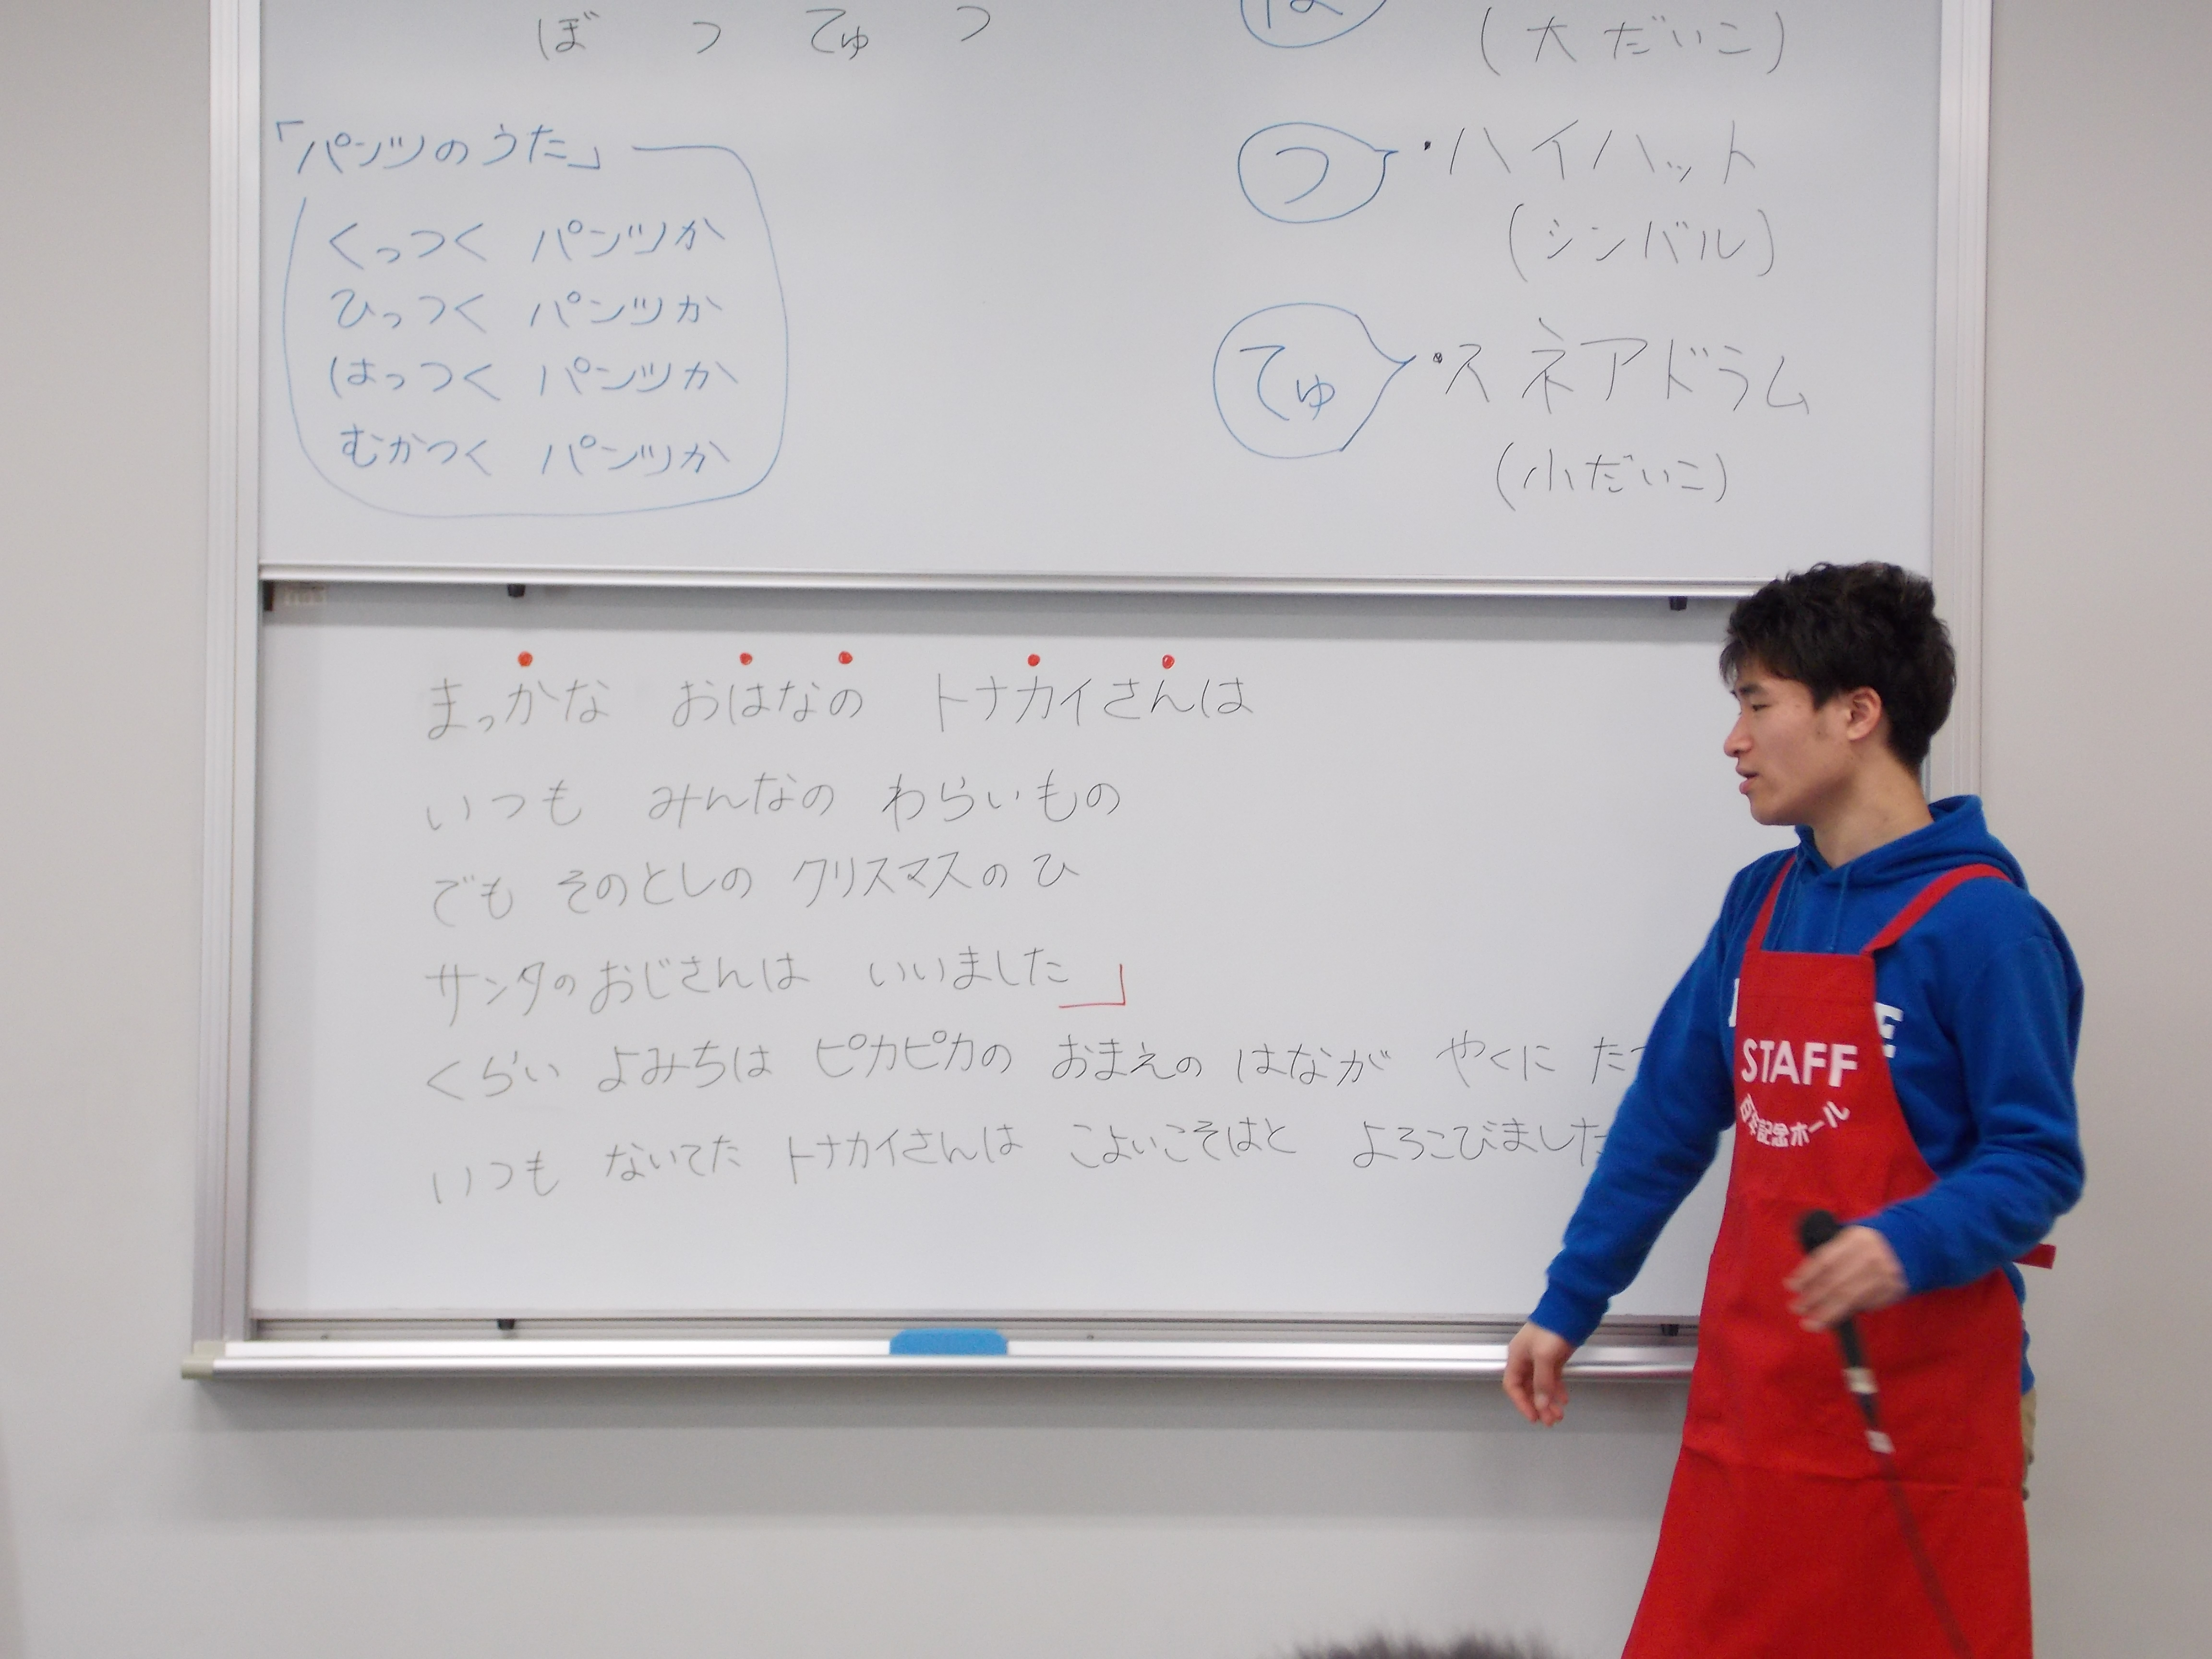 ぼ つ てゅ つ
「パンツのうた」
くっつく パンツか
ひっつく パンツか
はっつく パンツか
むかつく パンツか
(大だいこ)
つ ・ハイハット
(シンバル)
てゅ ・スネアドラム
(小だいこ)
まっかな おはなの トナカイさんは
いつも みんなの わらいもの
でも そのとしの クリスマスのひ
サンタのおじさんは いいました」
くらい よみちは ピカピカの おまえの はなが やくに たつ
いつも ないてた トナカイさんは こよいこそはと よろこびました
STAFF
記念ホール